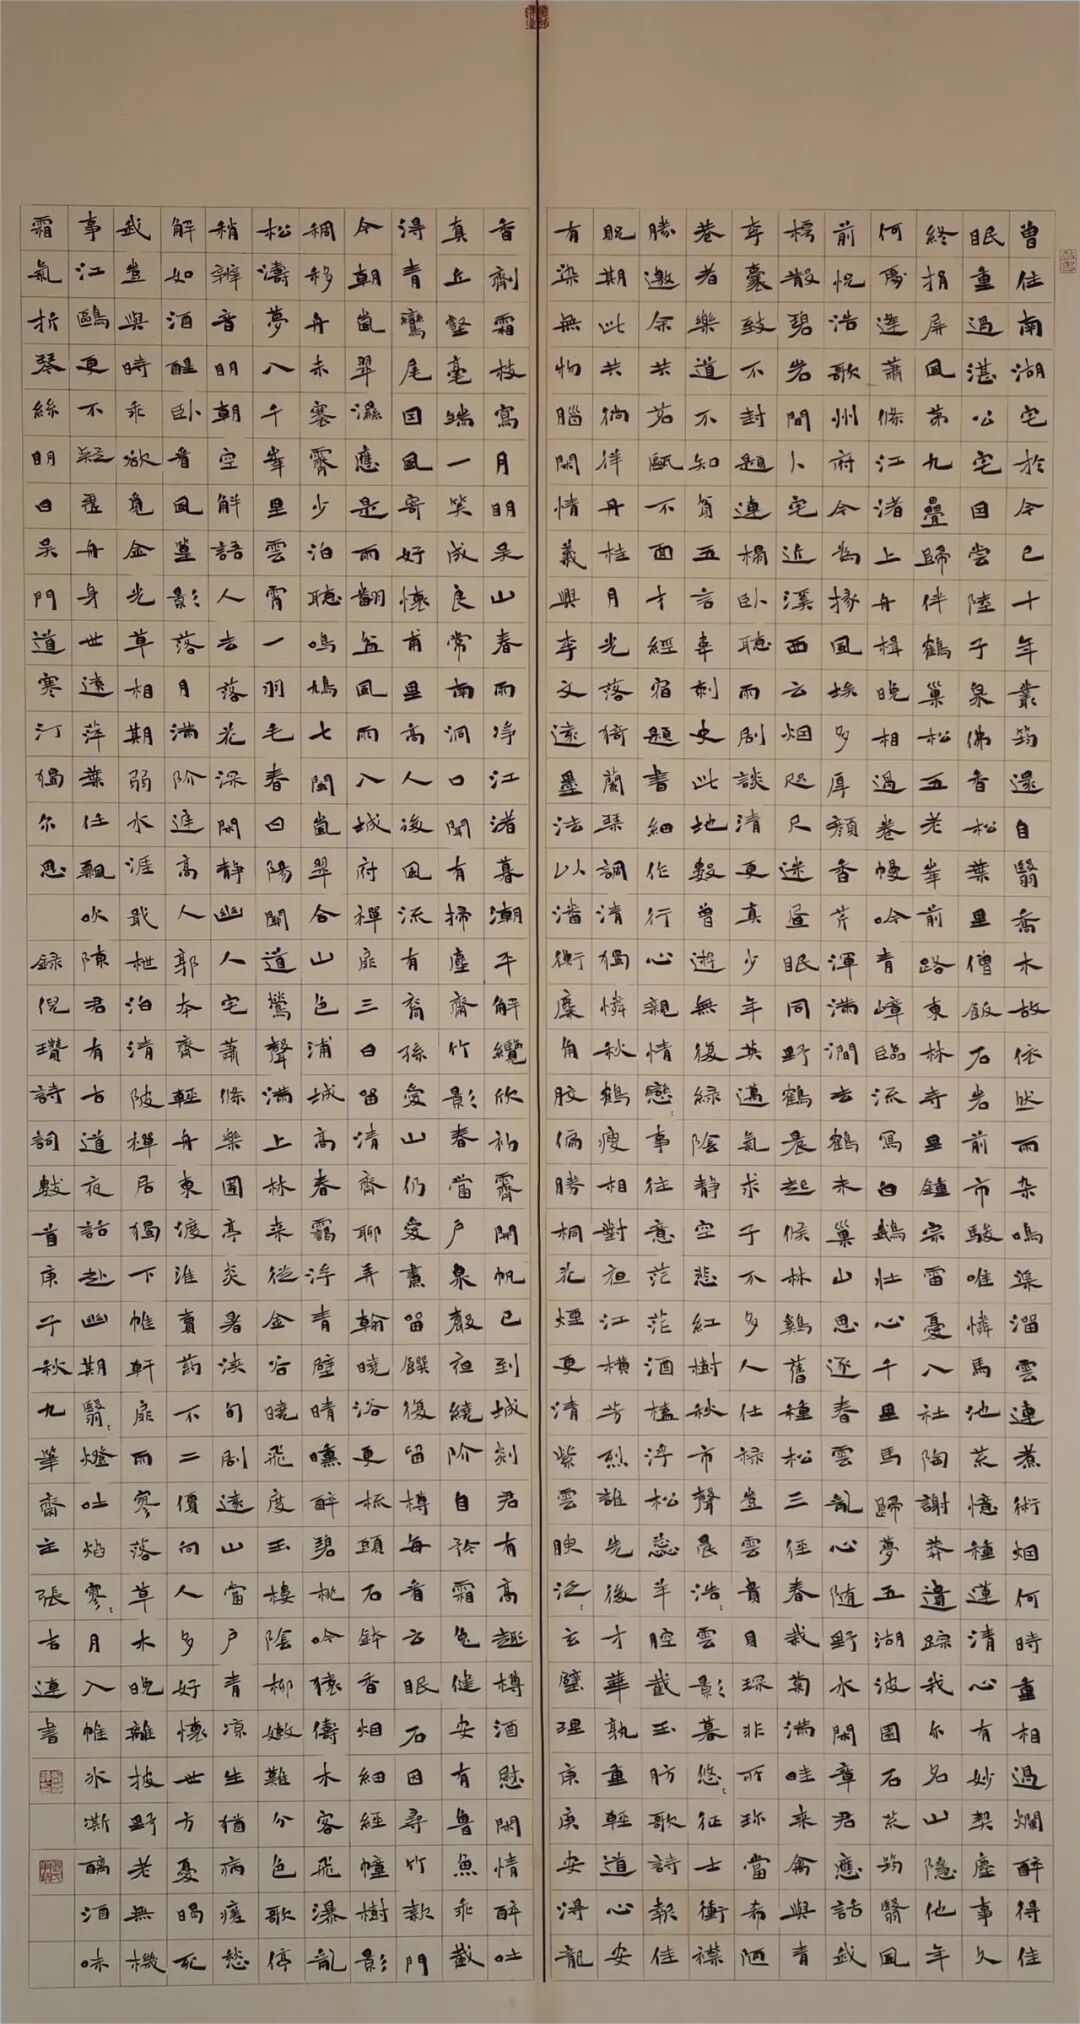 曾住南湖宅於今已十年叢筠還自翳喬木故依然雨杂鳴渠溜雲連煮術烟何時重相過爛醉得佳
眠重過湛公宅因尝陸子泉佛香松葉里僧飯石岩前市駿唯憐馬池荒憶種蓮清心有妙契塵事久
終捐屏風第九疊歸伴鶴巢松五老峯前路東林寺里鐘宗雷憂八社陶謝莽遺踪我尔名山隱他年
何處逢蕭條江渚上舟楫晚相過卷幔吟青嶂臨流寫白鵝壯心千里馬歸夢五湖波園石荒筠翳風
前恍浩歌州府今為掾風埃多厚顏香芹渾满澗玄鶴未巢山思逐春雲亂心随野水閑章君應話我
樗散碧岩間卜宅近溪西云烟咫尺迷昼眠同野鶴晨起候林鷄舊種松三径春栽菊满畦来禽與青
李囊致不封題連榻卧聽雨劇談清更真少年英邁氣求于不多人仕禄豈雲貴目琛非所珍當希陋
巷者樂道不知貧五言韋刺史此地數曾遊無復緑陰静空悲紅樹秋市聲晨浩:雲影暮悠:征士衝襟
勝邀余共茗甌不面才經宿題書細作行心親情戀:事往意茫茫酒榼浮松蕊羊腔截玉肪歌詩報佳
貺期此共徜徉丹桂月光落猗蘭琴調清獨憐秋鶴瘦相對夜江横芳烈誰先後才華孰重輕道心安
有染無物腦閑情義興李文遠墨法以潘衡麋角胶偏勝桐花煙更清紫雲腴泛:玄璧理庚庚安得龍
香劑霜枝寫月明泉山春雨净江渚暮潮平解纜欣初霽開帆已到城剡君有高趣樽酒慰閑情醉吐
真丘壑毫端一笑成良常南洞口聞有掃塵齋竹影春當户泉聲夜繞阶自矜霜兔健安有魯魚乖截
得青鸞尾因風寄好懷甫里高人後風流有裔孫愛山仍爱畫留饌復留樽每看云眠石因尋竹款門
今朝嵐翠濕應是雨翻盆風雨入城府禪扉三日留清齋聊弄翰晓浴更梳頭石鉢香烟細經幢樹影
稠移舟未寒霽少泊聽鳴鳩七閩嵐翠合山色浦城高春靄浮青壁晴曛醉碧桃吟猿儔木客飛瀑亂
松濤夢入千峯里雲霄一羽毛春日陽闢道鶯聲满上林来從金谷曉飛度玉樓陰柳嫩難分色歌停
稍辨音明朝空解語人去落花深閑静幽人宅蕭條樂圃亭炎暑浹旬劇遠山當户青凉生猶病瘧愁
解如酒醒卧看風篁影落月满阶進高人郭本齊輕舟東渡淮賣药不二價向人多好懷世方憂暍死
我豈與時乖欲覓金光草相期弱水涯戢枻泊清陂禪居獨下帷軒扉雨寥落草木晚離披野老無機
事江鷗更不疑虚舟身世遠萍葉任飄吹陳君有古道夜話赴幽期翳:燈吐焰寥:月入帷冰澌酾酒味
霜氣折琴絲明日吴門道寒汀獨尔思 録倪瓚詩詞數首庚子秋九華齋主張吉連書